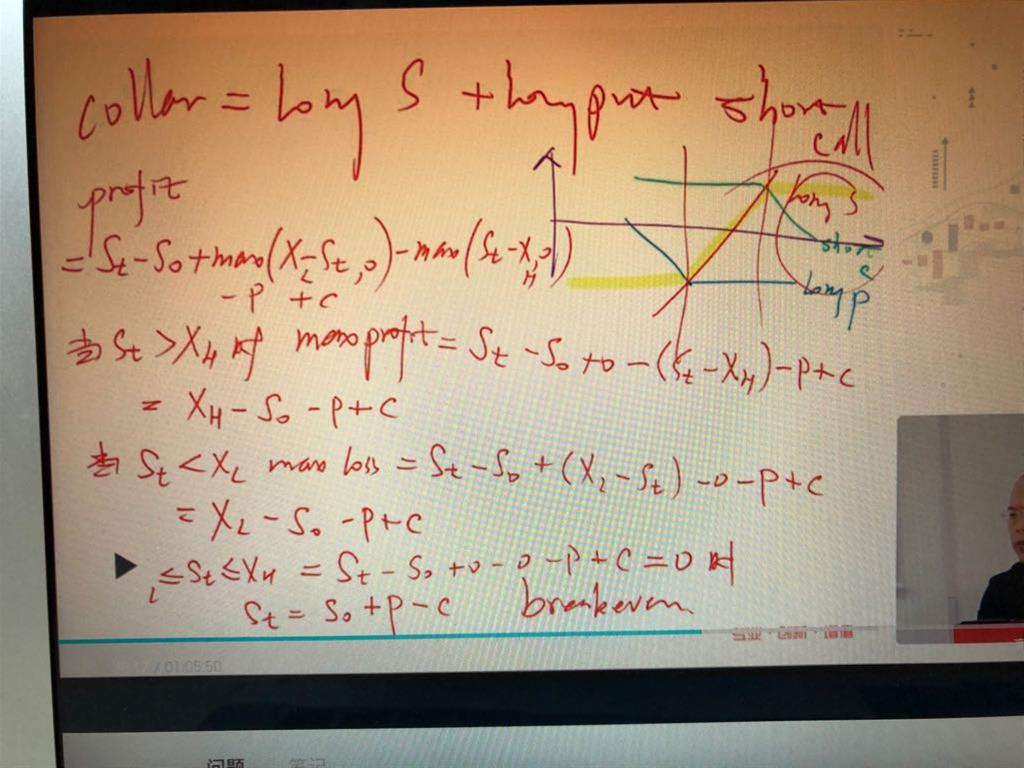 collar = Long S + Long put short call
profit
= St - S0 + max(XL - St, 0) - max(St - XH, 0)
- P + C
Long S
short C
Long P
当 St > XH 时 max profit = St - S0 + 0 - (St - XH) - P + C
= XH - S0 - P + C
当 St < XL max loss = St - S0 + (XL - St) - 0 - P + C
= XL - S0 - P + C
L ≤ St ≤ XH = St - S0 + 0 - 0 - P + C = 0 时
St = S0 + P - C breakeven
/ 01:05:50
问题 笔记